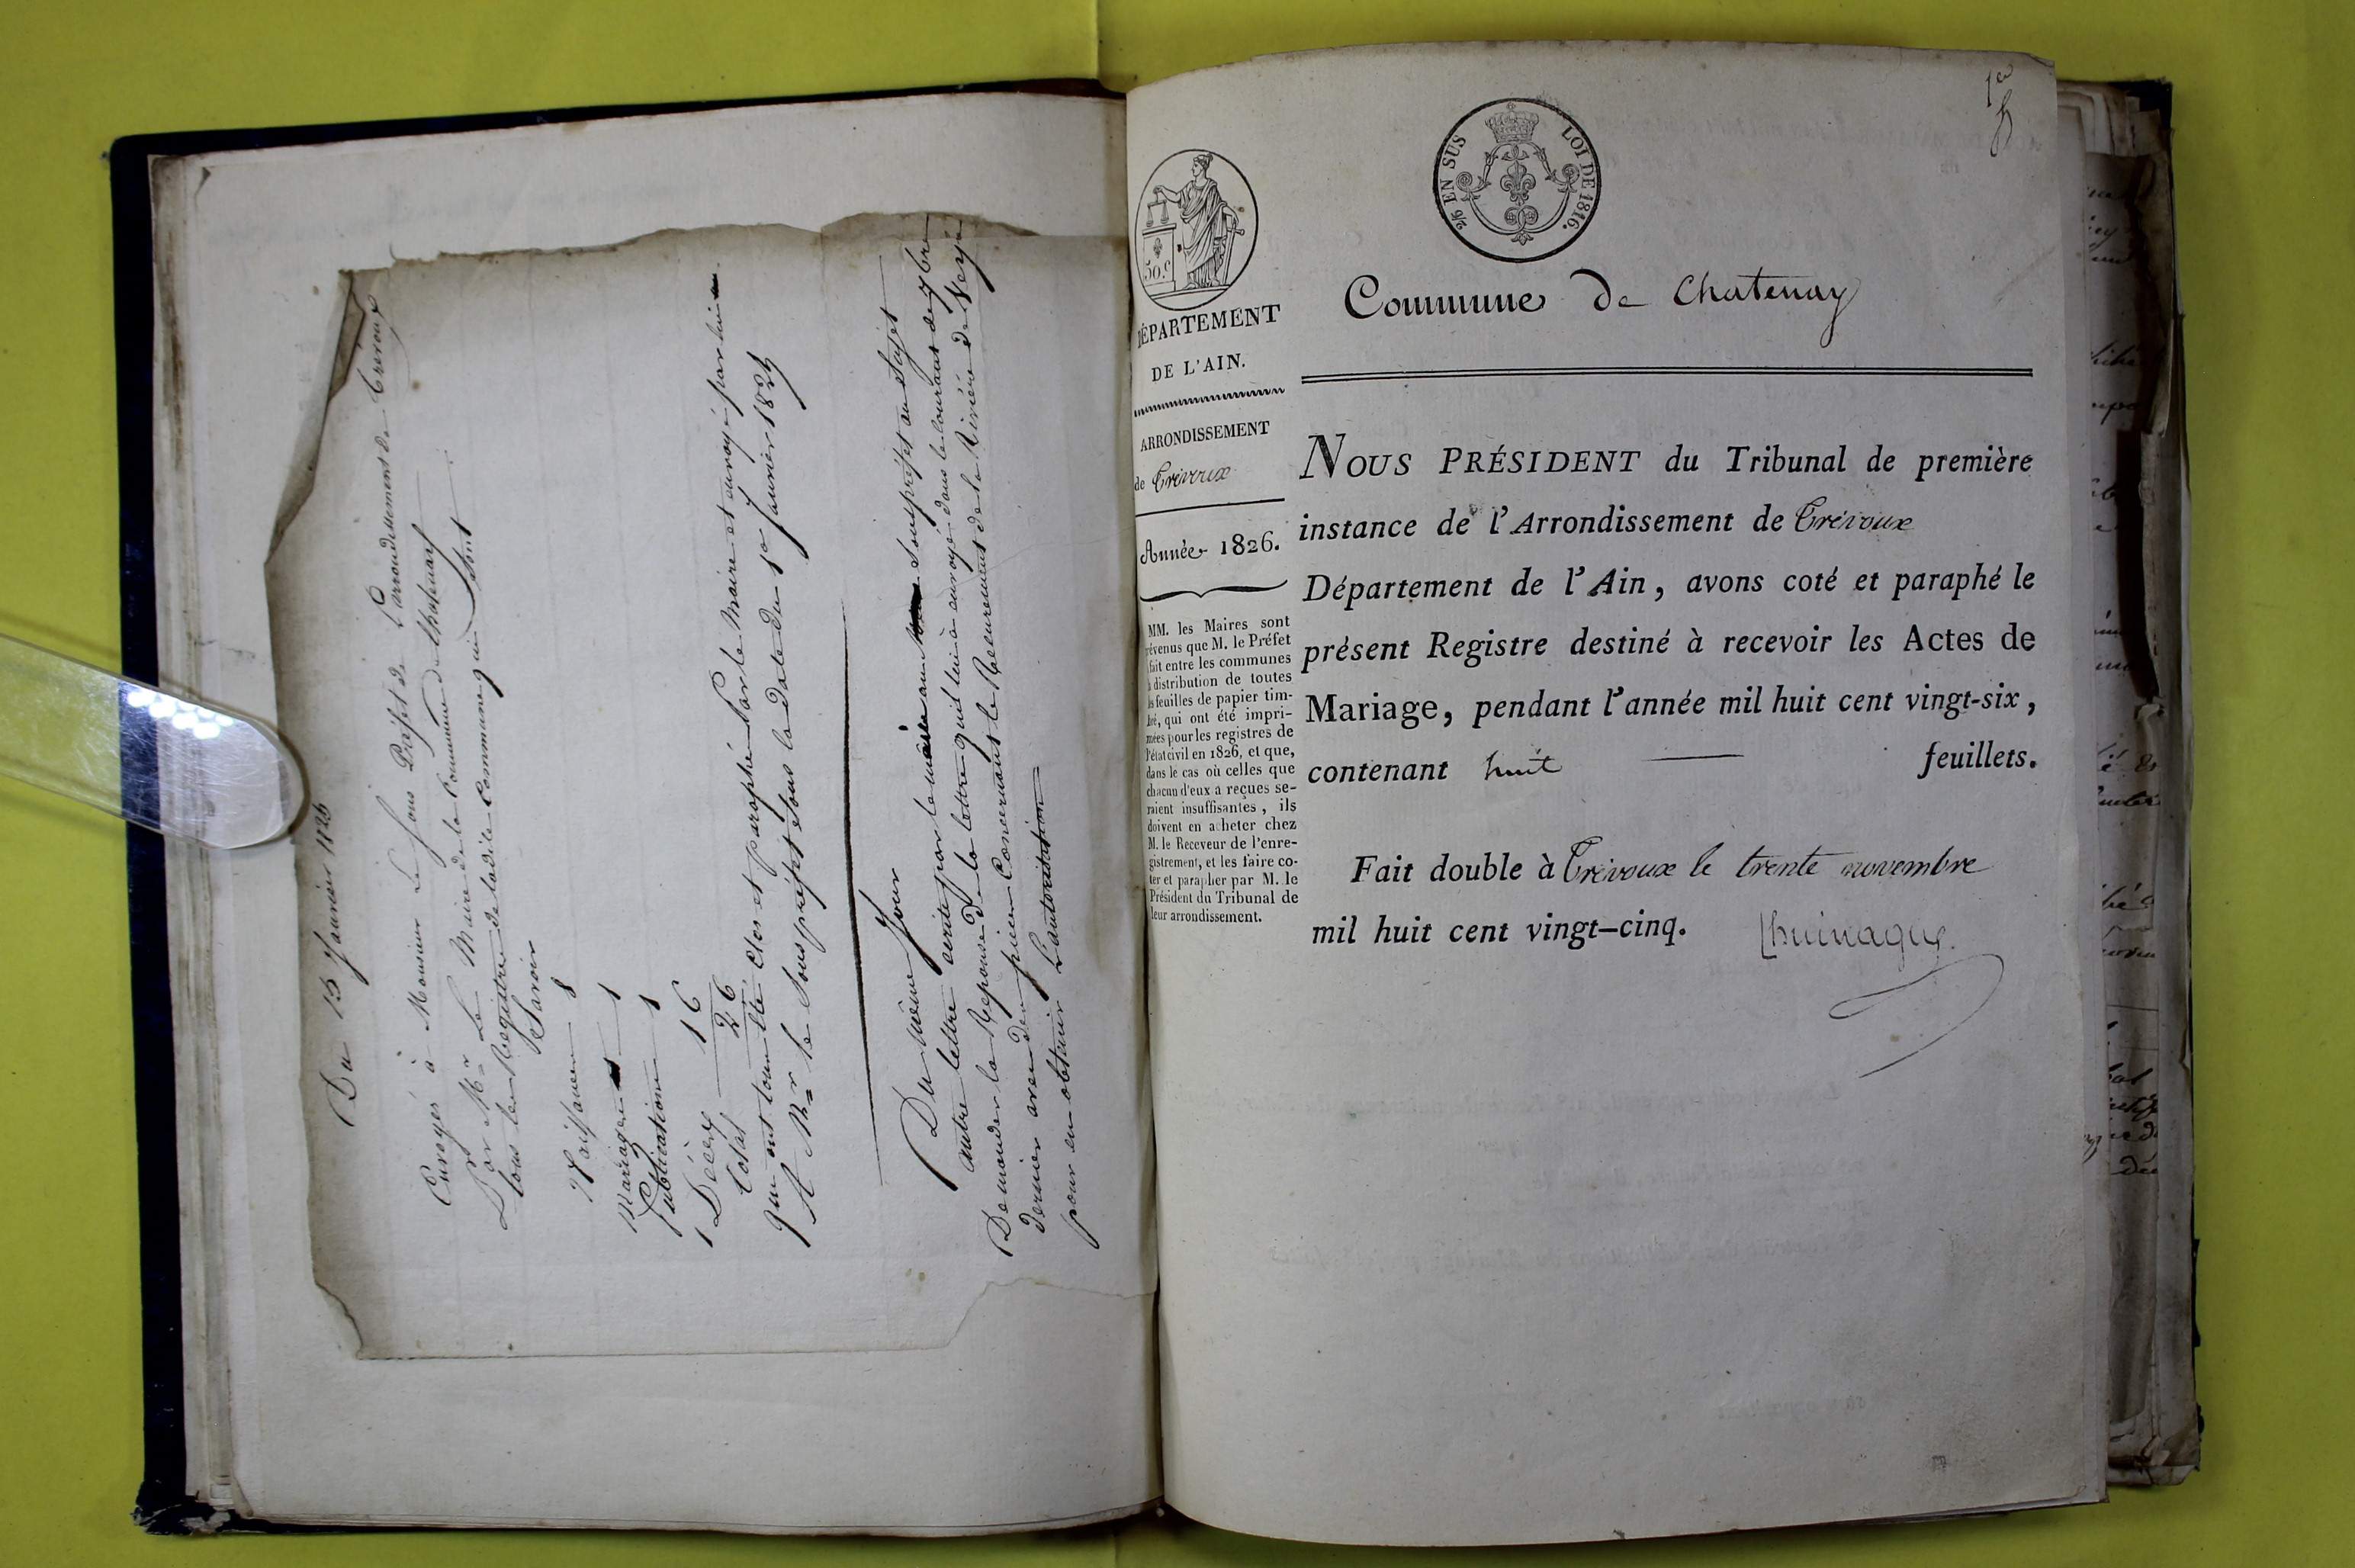 Du 15 Janvier 1826
Envoyés à Monsieur Le Sous Préfet de L'arrondissement de Trévoux
Par Mr Le Maire de la Commune de Chatenay
tous les Registres de ladite Commune qui sont
Savoir
Naissances 8
Mariages 1
Publications 1
Décès 16
Total 26
qui ont tous été clos et paraphé Par le Maire et envoyé par lui
A Mr le Sous préfet sous la date du 1er Janvier 1825
Du même Jour
autre lettre écrite par le maire au Sous préfet au Sujet
Demander la Réponse de la lettre qu'il lui a envoyé dans le courant de 9bre
dernier avec des pièces Concernant le Recurement de la Rivière de Veyle
pour en obtenir L'autorisation
1er
2/6 EN SUS LOI DE 1816.
50.c
DÉPARTEMENT
DE L'AIN.
ARRONDISSEMENT
de Trévoux
Année 1826.
MM. les Maires sont
prévenus que M. le Préfet
fait entre les communes
la distribution de toutes
les feuilles de papier tim-
bré, qui ont été impri-
mées pour les registres de
l'état civil en 1826, et que,
dans le cas où celles que
chacun d'eux a reçues se-
raient insuffisantes, ils
doivent en acheter chez
M. le Receveur de l'enre-
gistrement, et les faire co-
ter et parapher par M. le
Président du Tribunal de
leur arrondissement.
Commune de Chatenay
NOUS PRÉSIDENT du Tribunal de première
instance de l'Arrondissement de Trévoux
Département de l'Ain, avons coté et paraphé le
présent Registre destiné à recevoir les Actes de
Mariage, pendant l'année mil huit cent vingt-six,
contenant huit — feuillets.
Fait double à Trévoux le trente novembre
mil huit cent vingt-cinq.